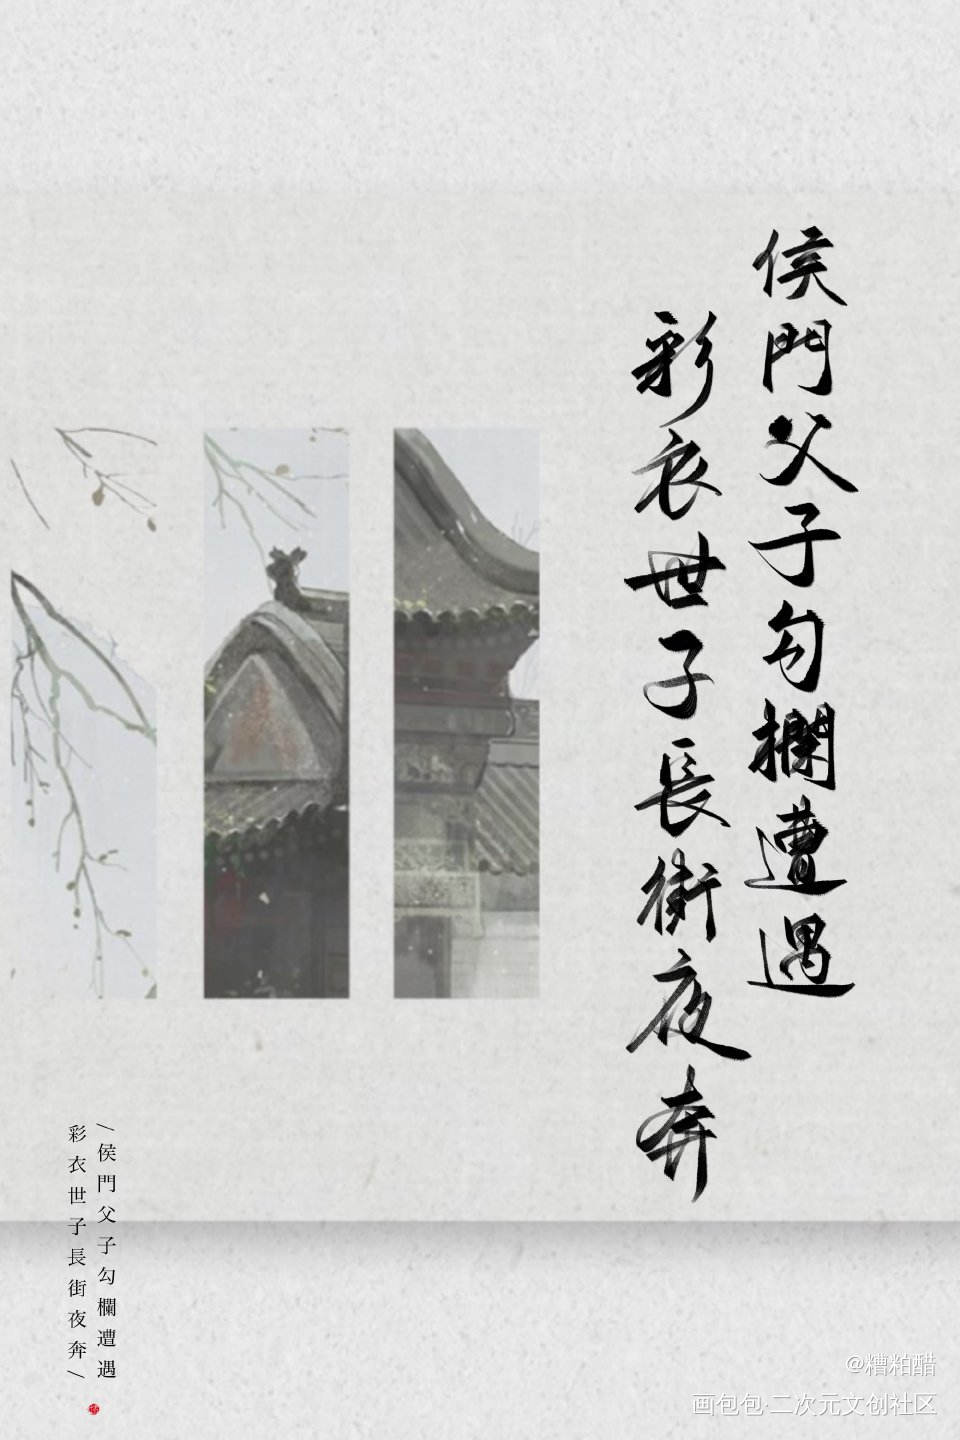 侯門父子勾欄遭遇
彩衣世子長街夜奔
/侯門父子勾欄遭遇
彩衣世子長街夜奔/
@糟粕醋
画包包·二次元文创社区